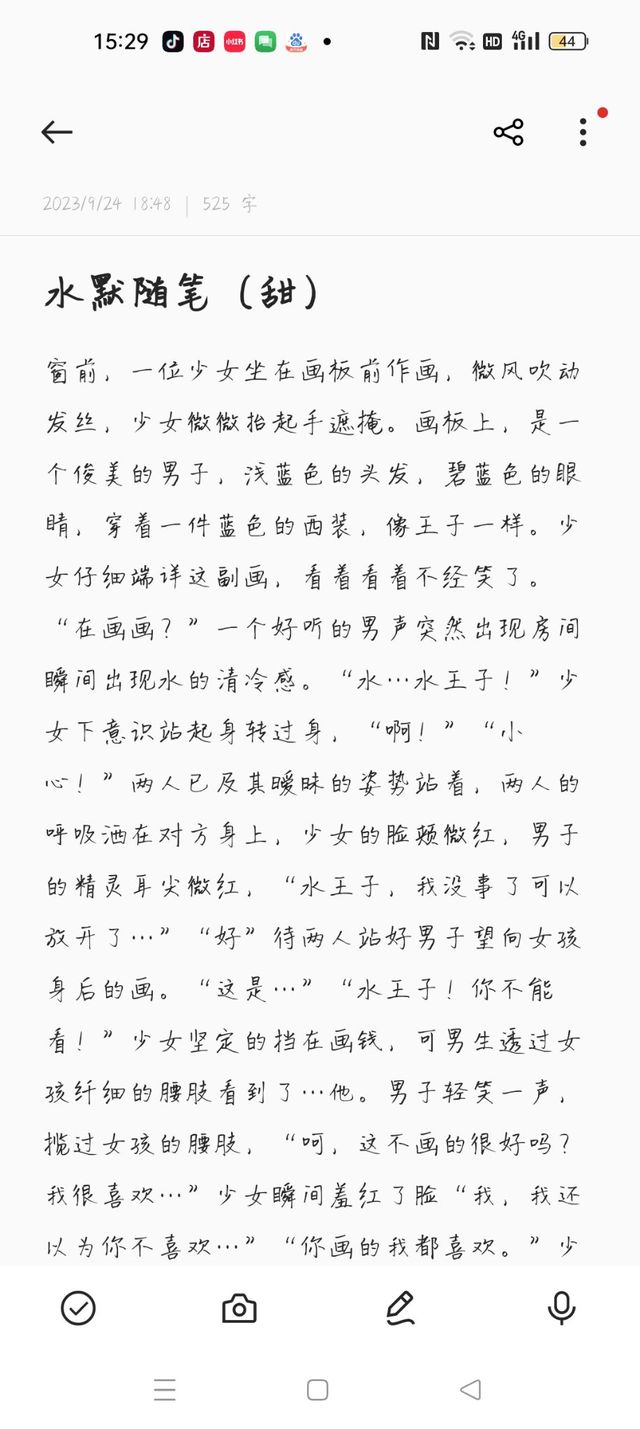 15:29
店
小红书
N
HD
4G
44
2023/9/24 18:48 | 525 字
水默随笔（甜）
窗前，一位少女坐在画板前作画，微风吹动
发丝，少女微微抬起手遮掩。画板上，是一
个俊美的男子，浅蓝色的头发，碧蓝色的眼
睛，穿着一件蓝色的西装，像王子一样。少
女仔细端详这副画，看着看着不经笑了。
“在画画？”一个好听的男声突然出现房间
瞬间出现水的清冷感。“水…水王子！”少
女下意识站起身转过身，“啊！”“小
心！”两人已及其暧昧的姿势站着，两人的
呼吸洒在对方身上，少女的脸颊微红，男子
的精灵耳尖微红，“水王子，我没事了可以
放开了…”“好”待两人站好男子望向女孩
身后的画。“这是…”“水王子！你不能
看！”少女坚定的挡在画钱，可男生透过女
孩纤细的腰肢看到了…他。男子轻笑一声，
揽过女孩的腰肢，“呵，这不画的很好吗？
我很喜欢…”少女瞬间羞红了脸“我，我还
以为你不喜欢…”“你画的我都喜欢。”少